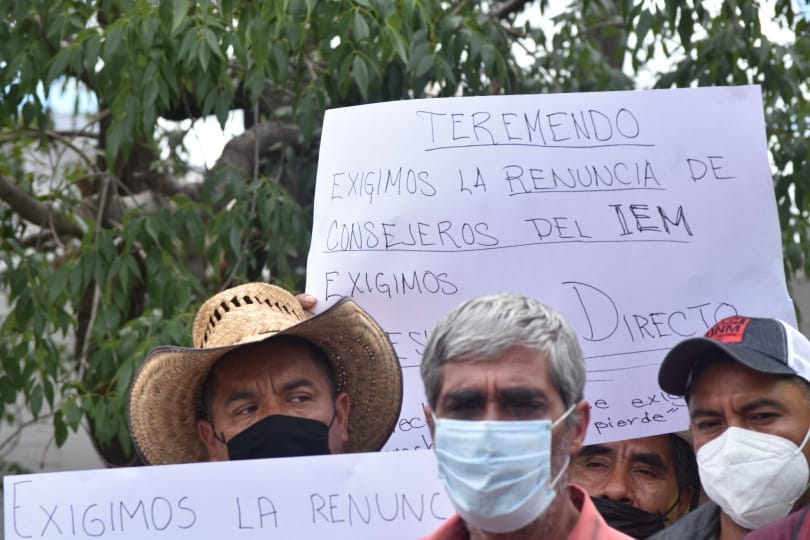 TEREMENDO
EXIGIMOS LA RENUNCIA DE
CONSEJEROS DEL IEM
EXIGIMOS
DIRECTO
pierde"
EXIGIMOS LA RENUNC